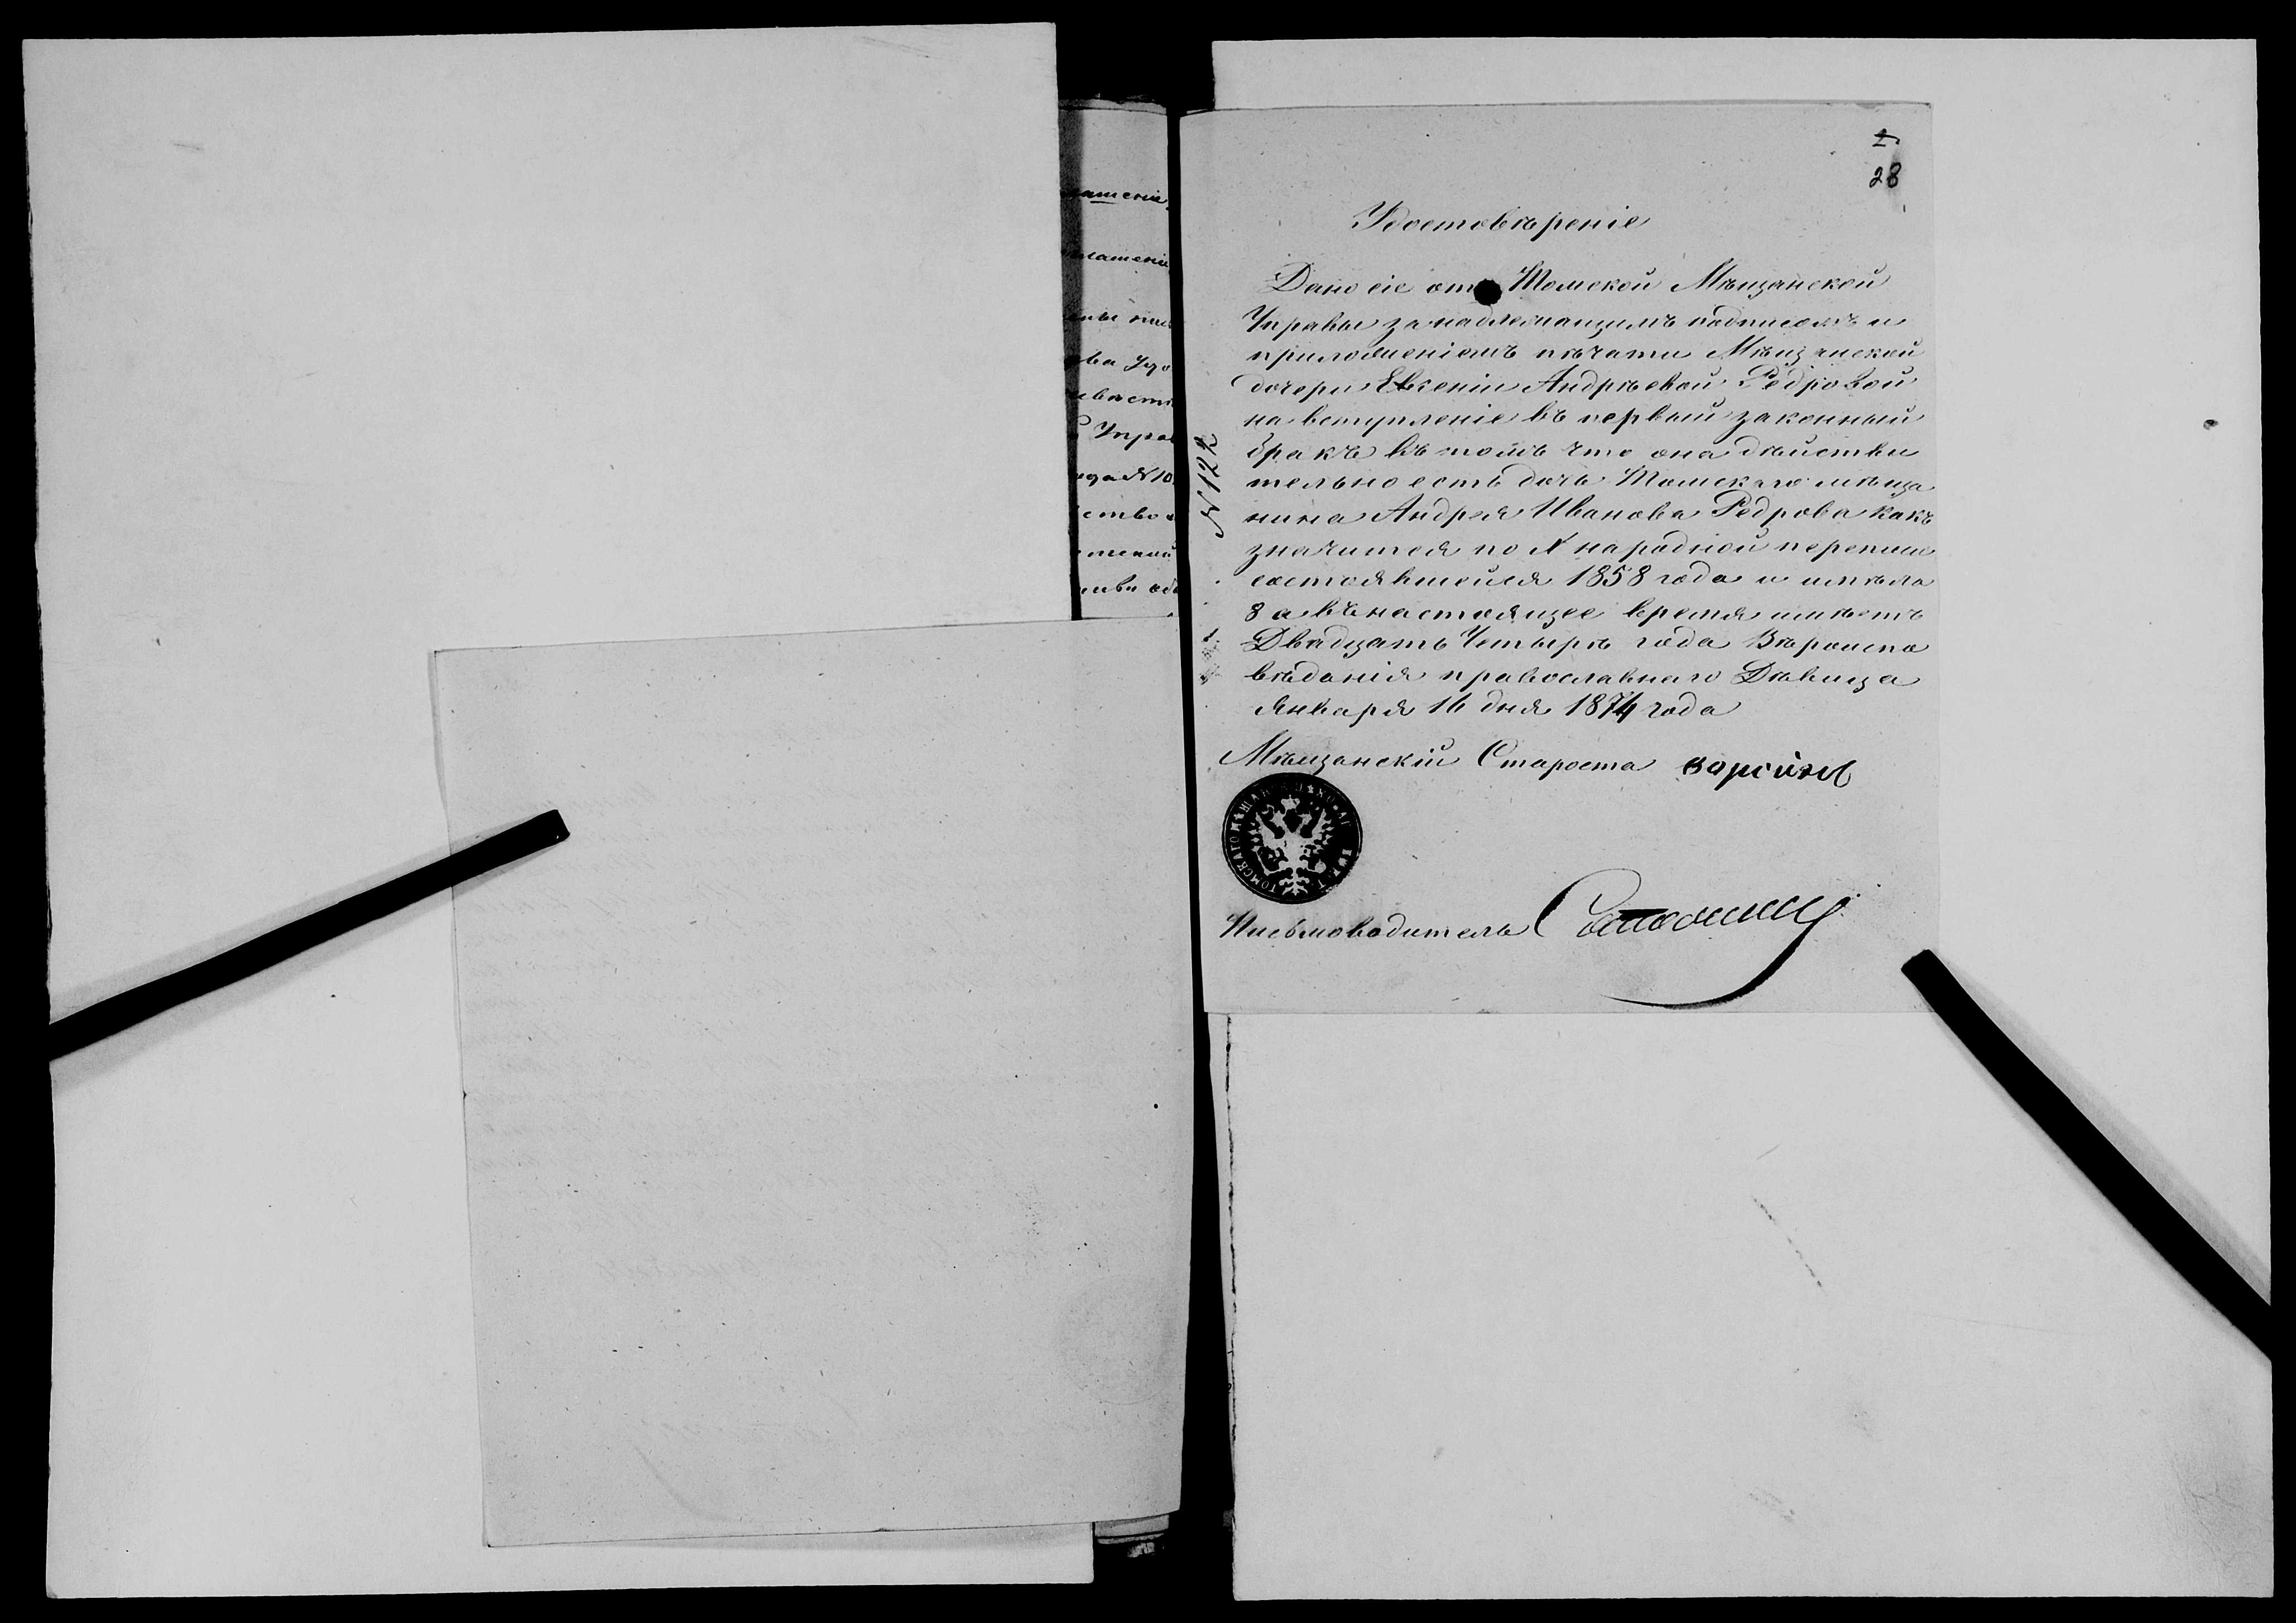 ашеніе
глашеніе
ова Удо
Упра
ода N 10
ство
1
28
Удостовѣреніе
Дано сіе отъ Томской Мѣщанской
Управы за надлежащимъ подписомъ и
приложеніемъ пѣчати Мѣщанской
дочери Евгеніи Андрѣевой Редровой
на вступленіе въ первый законный
бракъ въ томъ что она дѣйстви
тельно есть дочь Томскаго мѣща
нина Андрея Иванова Редрова какъ
значится по X народной переписи
состоявшейся 1858 года и имѣла
8 а въ настоящее время имѣетъ
Двадцать Четырѣ года Вѣроиспо
вѣданія православнаго Дѣвица
Января 16 дня 1874 года
N 122
Мѣщанскій Староста
ТОМСКАГО МѢЩАНСКАГО
Письмоводитель